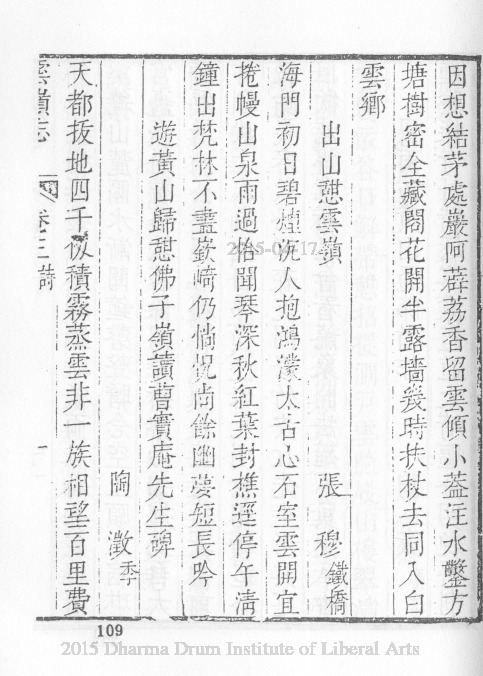 因想結茅處巖阿薜荔香留雲傾小葢汪水鑿方
塘樹密全藏閣花開半露墻幾時扶杖去同入白
雲鄉
出山憇雲嶺 張 穆鐵橋
海門初日碧煙洗人抱鴻濛太古心石室雲開宜
捲幔山泉雨過恰聞琴深秋紅葉封樵逕停午淸
鐘出梵林不盡嶔崎仍惝怳尚餘幽夢短長吟
遊黃山歸憇佛子嶺讀曹實庵先生碑
陶 澂季
天都拔地四千仭積霧蒸雲非一族相望百里費
雲嶺志 卷三詩 一
109
2015 Dharma Drum Institute of Liberal Arts